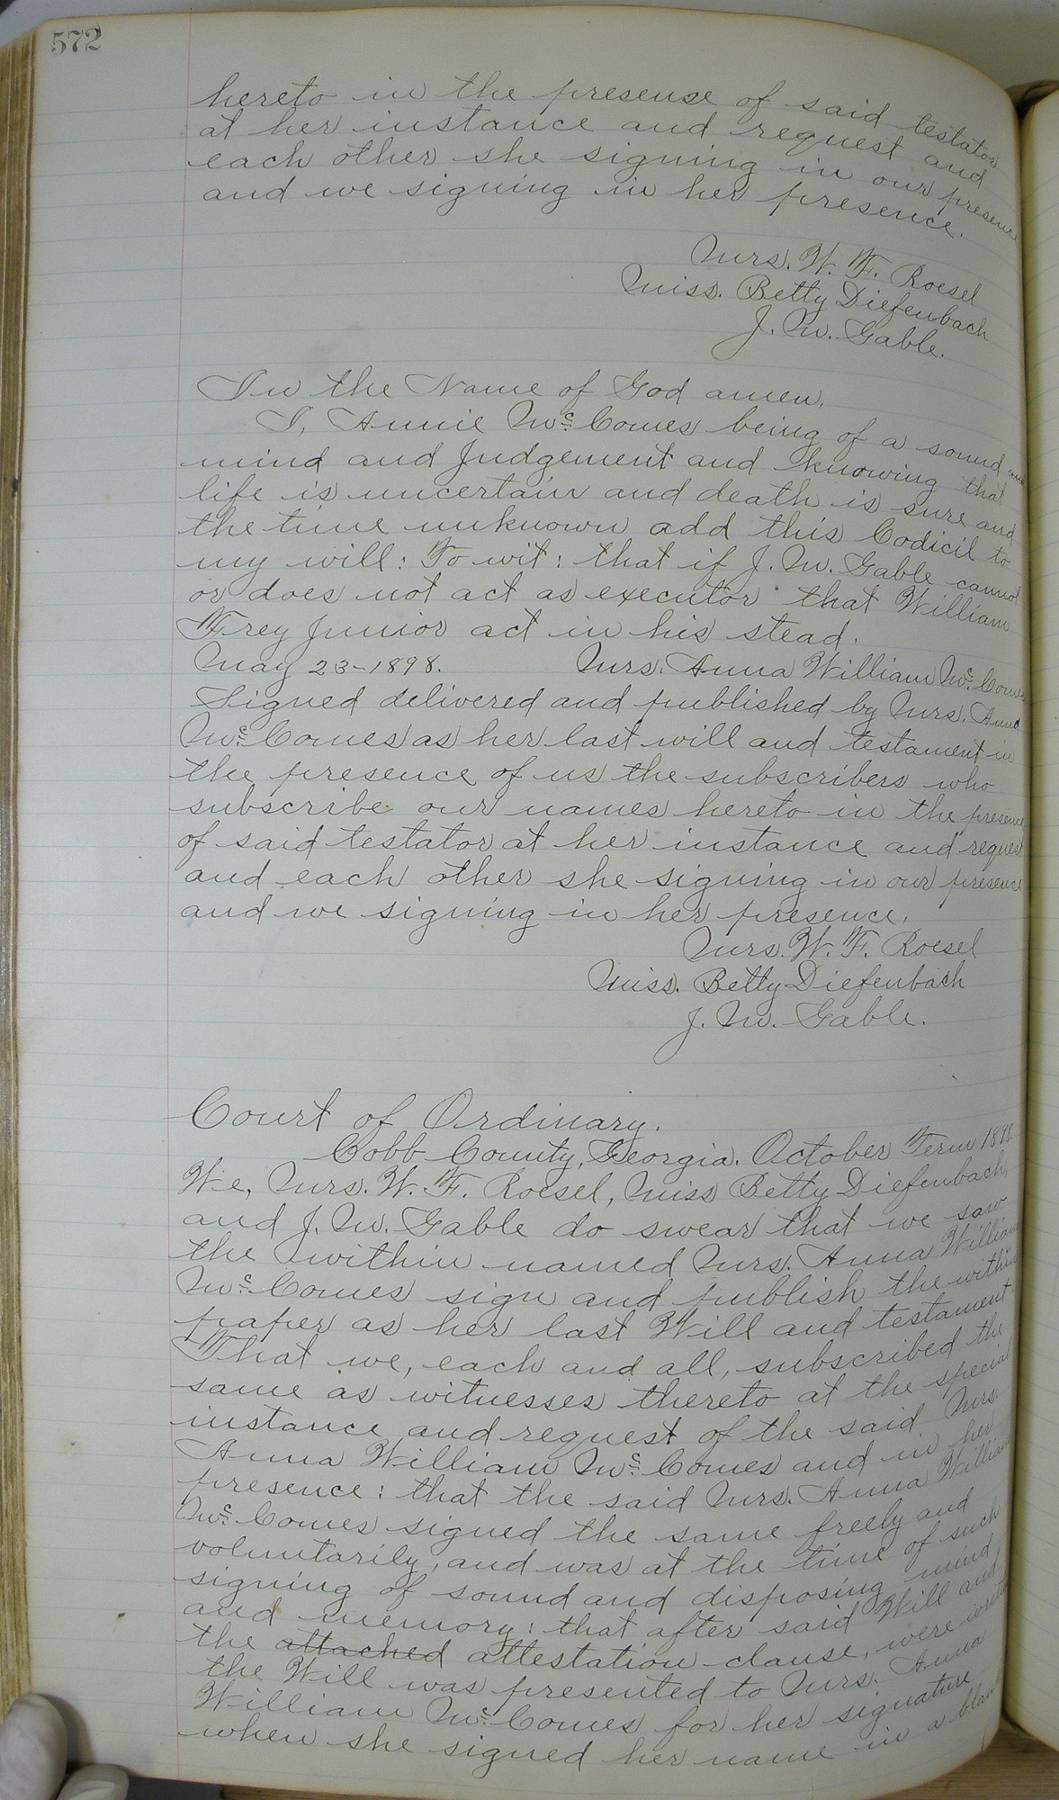 572
hereto in the presence of said testator
at her instance and request and
each other she signing in our presence
and we signing in her presence.
Mrs. W. F. Roesel
Miss. Betty Diefenbach
J. M. Gable.
In the Name of God amen.
I, Annie Mc. Comes being of a sound and
mind and Judgement and knowing that
life is uncertain and death is sure and
the time unknown add this Codicil to
my will: To wit: that if J. M. Gable cannot
or does not act as executor that William
Frey Junior act in his stead.
May 23-1898. Mrs. Anna William Mc. Comes
Signed delivered and published by Mrs. Anna
Mc. Comes as her last will and testament in
the presence of us the subscribers who
subscribe our names hereto in the presence
of said testator at her instance and request
and each other she signing in our presence
and we signing in her presence.
Mrs. W. F. Roesel
Miss. Betty Diefenbach
J. M. Gable.
Court of Ordinary.
Cobb County, Georgia. October Term 1898
We, Mrs. W. F. Roesel, Miss Betty Diefenbach,
and J. M. Gable do swear that we saw
the within named Mrs. Anna William
Mc. Comes sign and publish the within
paper as her last Will and testament.
That we, each and all, subscribed the
same as witnesses thereto at the special
instance and request of the said Mrs.
Anna William Mc. Comes and in her
presence: that the said Mrs. Anna William
Mc. Comes signed the same freely and
voluntarily, and was at the time of such
signing of sound and disposing mind
and memory: that after said Will and
the attached attestation clause, were
the Will was presented to Mrs. Anna
William Mc. Comes for her signature
when she signed her name in a blank